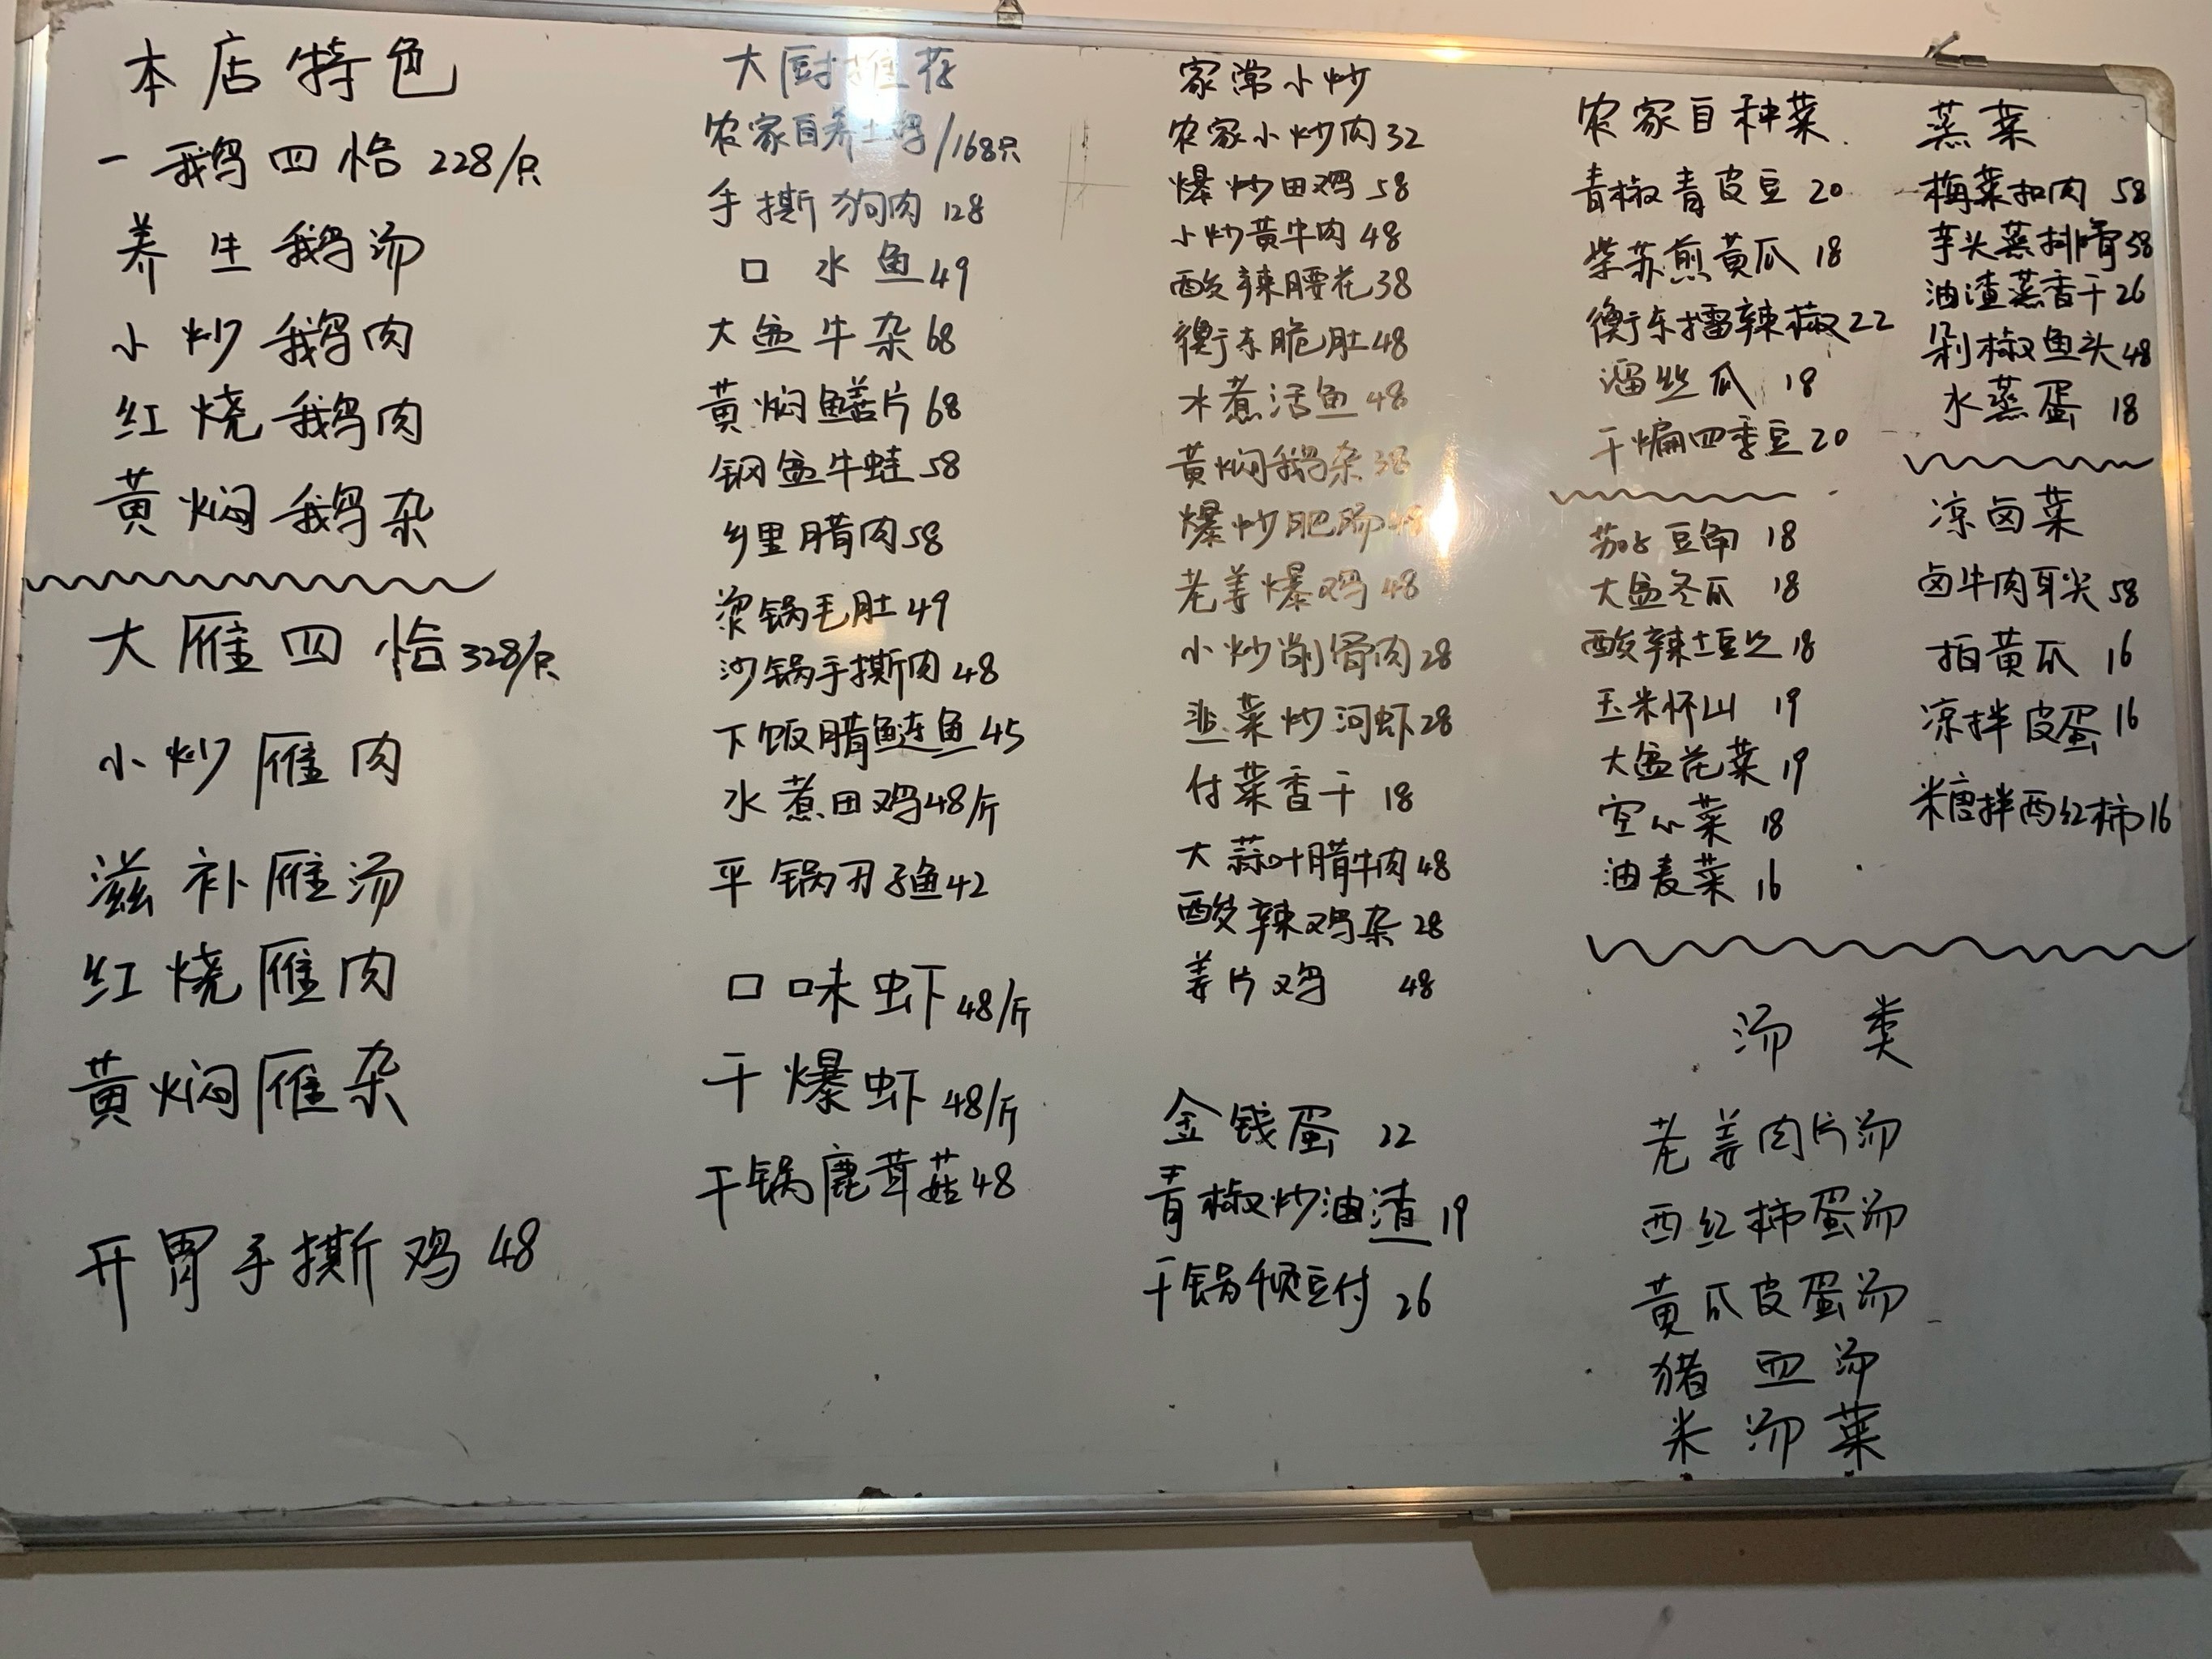 本店特色
一鹅四恰 228/只
养生鹅汤
小炒鹅肉
红烧鹅肉
黄焖鹅杂
大雁四恰 328/只
小炒雁肉
滋补雁汤
红烧雁肉
黄焖雁杂
开胃手撕鸡 48
大厨推荐
农家自养土鸡/168只
手撕狗肉 128
口水鱼 49
大盆牛杂 68
黄焖鳝片 68
钢盆牛蛙 58
乡里腊肉 58
烫锅毛肚 49
沙锅手撕肉 48
下饭腊鲢鱼 45
水煮田鸡 48/斤
平锅刁子鱼 42
口味虾 48/斤
干爆虾 48/斤
干锅鹿茸菇 48
家常小炒
农家小炒肉 32
爆炒田鸡 58
小炒黄牛肉 48
酸辣腰花 38
衡东脆肚 48
水煮活鱼 48
黄焖鹅杂 38
爆炒肥肠 48
老姜爆鸡 48
小炒削骨肉 28
韭菜炒河虾 28
付菜香干 18
大蒜叶腊牛肉 48
酸辣鸡杂 28
姜片鸡 48
金钱蛋 22
青椒炒油渣 19
干锅千页豆付 26
农家自种菜
青椒青皮豆 20
紫苏煎黄瓜 18
衡东擂辣椒 22
溜丝瓜 18
干煸四季豆 20
茄子豆角 18
大盆冬瓜 18
酸辣土豆丝 18
玉米怀山 19
大盆花菜 19
空心菜 18
油麦菜 16
蒸菜
梅菜扣肉 58
芋头蒸排骨 58
油渣蒸香干 26
剁椒鱼头 48
水蒸蛋 18
凉卤菜
卤牛肉耳尖 58
拍黄瓜 16
凉拌皮蛋 16
糖拌西红柿 16
汤类
老姜肉片汤
西红柿蛋汤
黄瓜皮蛋汤
猪血汤
米汤菜